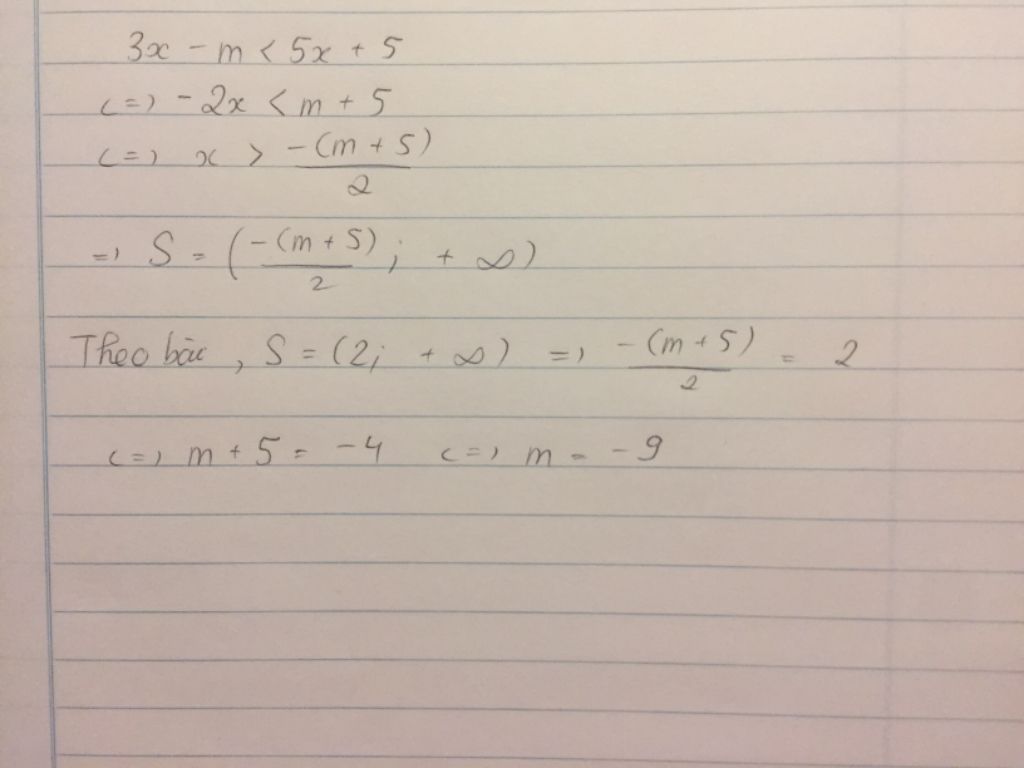 3x - m < 5x + 5
<=> -2x < m + 5
<=> x > -(m + 5)/2
=> S = (-(m + 5)/2; +∞)
Theo bài, S = (2; +∞) => -(m + 5)/2 = 2
<=> m + 5 = -4 <=> m = -9